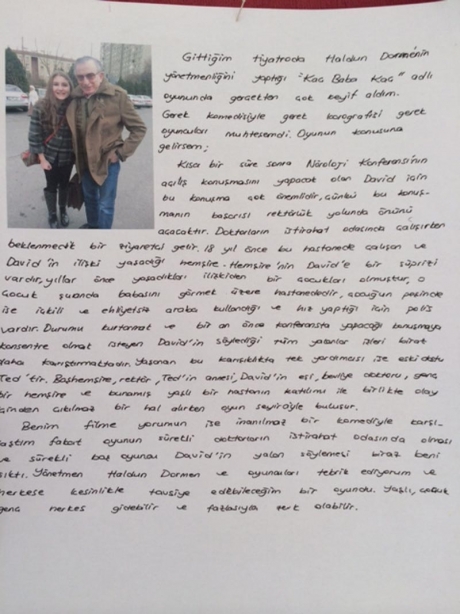 Gittiğim tiyatroda Haldun Dormen'in
yönetmenliğini yaptığı "Kaç Baba Kaç" adlı
oyununda gerçekten çok keyif aldım.
Gerek komedisiyle gerek korografisi gerek
oyuncuları muhteşemdi. Oyunun konusuna
gelirsem;
Kısa bir süre sonra Nöroloji Konferansı'nın
açılış konuşmasını yapacak olan David için
bu konuşma çok önemlidir, çünkü bu konuş-
manın başarısı rektörlük yolunda önünü
açacaktır. Doktorların istirahat odasında çalışırken
beklenmedik bir ziyaretçi gelir. 18 yıl önce bu hastanede çalışan ve
David'in ilişki yaşadığı hemşire. Hemşire'nin David'e bir süprizi
vardır, yıllar önce yaşadıkları ilişkiden bir çocukları olmuştur, o
çocuk şuanda babasını görmek üzere hastanededir, çocuğun peşinde
ise içkili ve ehliyetsiz araba kullandığı ve hız yaptığı için polis
vardır. Durumu kurtarmak ve bir an önce konferansta yapacağı konuşmaya
konsentre olmak isteyen David'in söylediği tüm yalanlar işleri birat
daha karıştırmaktadır. Yaşanan bu karışıklıkta tek yardımcısı ise eski dostu
Ted'tir. Başhemşire, rektör, Ted'in annesi, David'in eşi, bevliye doktoru, genç
bir hemşire ve bunamış yaşlı bir hastanın katılımı ile birlikte olay
içinden çıkılmaz bir hal alırken oyun seyirciyle buluşur.
Benim filme yorumum ise inanılmaz bir komediyle karşı-
laştım fakat oyunun sürekli doktorların istirahat odasında olması
ve sürekli baş oyuncu David'in yalan söylemesi biraz beni
sıktı. Yönetmen Haldun Dormen ve oyuncuları tebrik ediyorum ve
herkese kesinlikle tavsiye edebileceğim bir oyundu. Yaşlı, çocuk
genç herkes gidebilir ve fazlasıyla zevk alabilir.